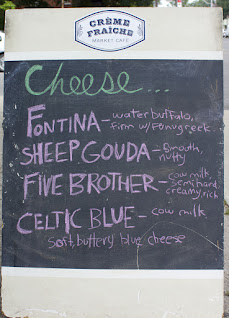 CRÈME
FRAÎCHE
MARKET CAFÉ
Cheese...
FONTINA - water buffalo,
firm w/ Fenugreek
SHEEP GOUDA - Smooth,
nutty
FIVE BROTHER - cow milk,
semi hard
creamy, rich
CELTIC BLUE - cow milk
soft, buttery blue cheese